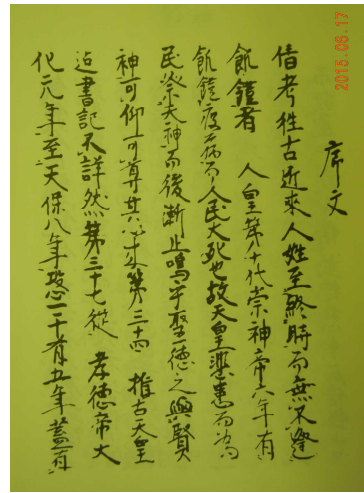 2015.06.17
序文
倩考往古近來人姓至終時而無不逢
飢饉者 人皇第十代崇神帝六年有
飢饉疫病而人民大死也故天皇悲患而為
民祭天神而後漸止嗚乎聖德之與賢
神可仰可尊其 第三十四 推古天皇
書記不詳然第三十七從 孝德帝大
化元年至天保八年 一千 百 五年蓋有